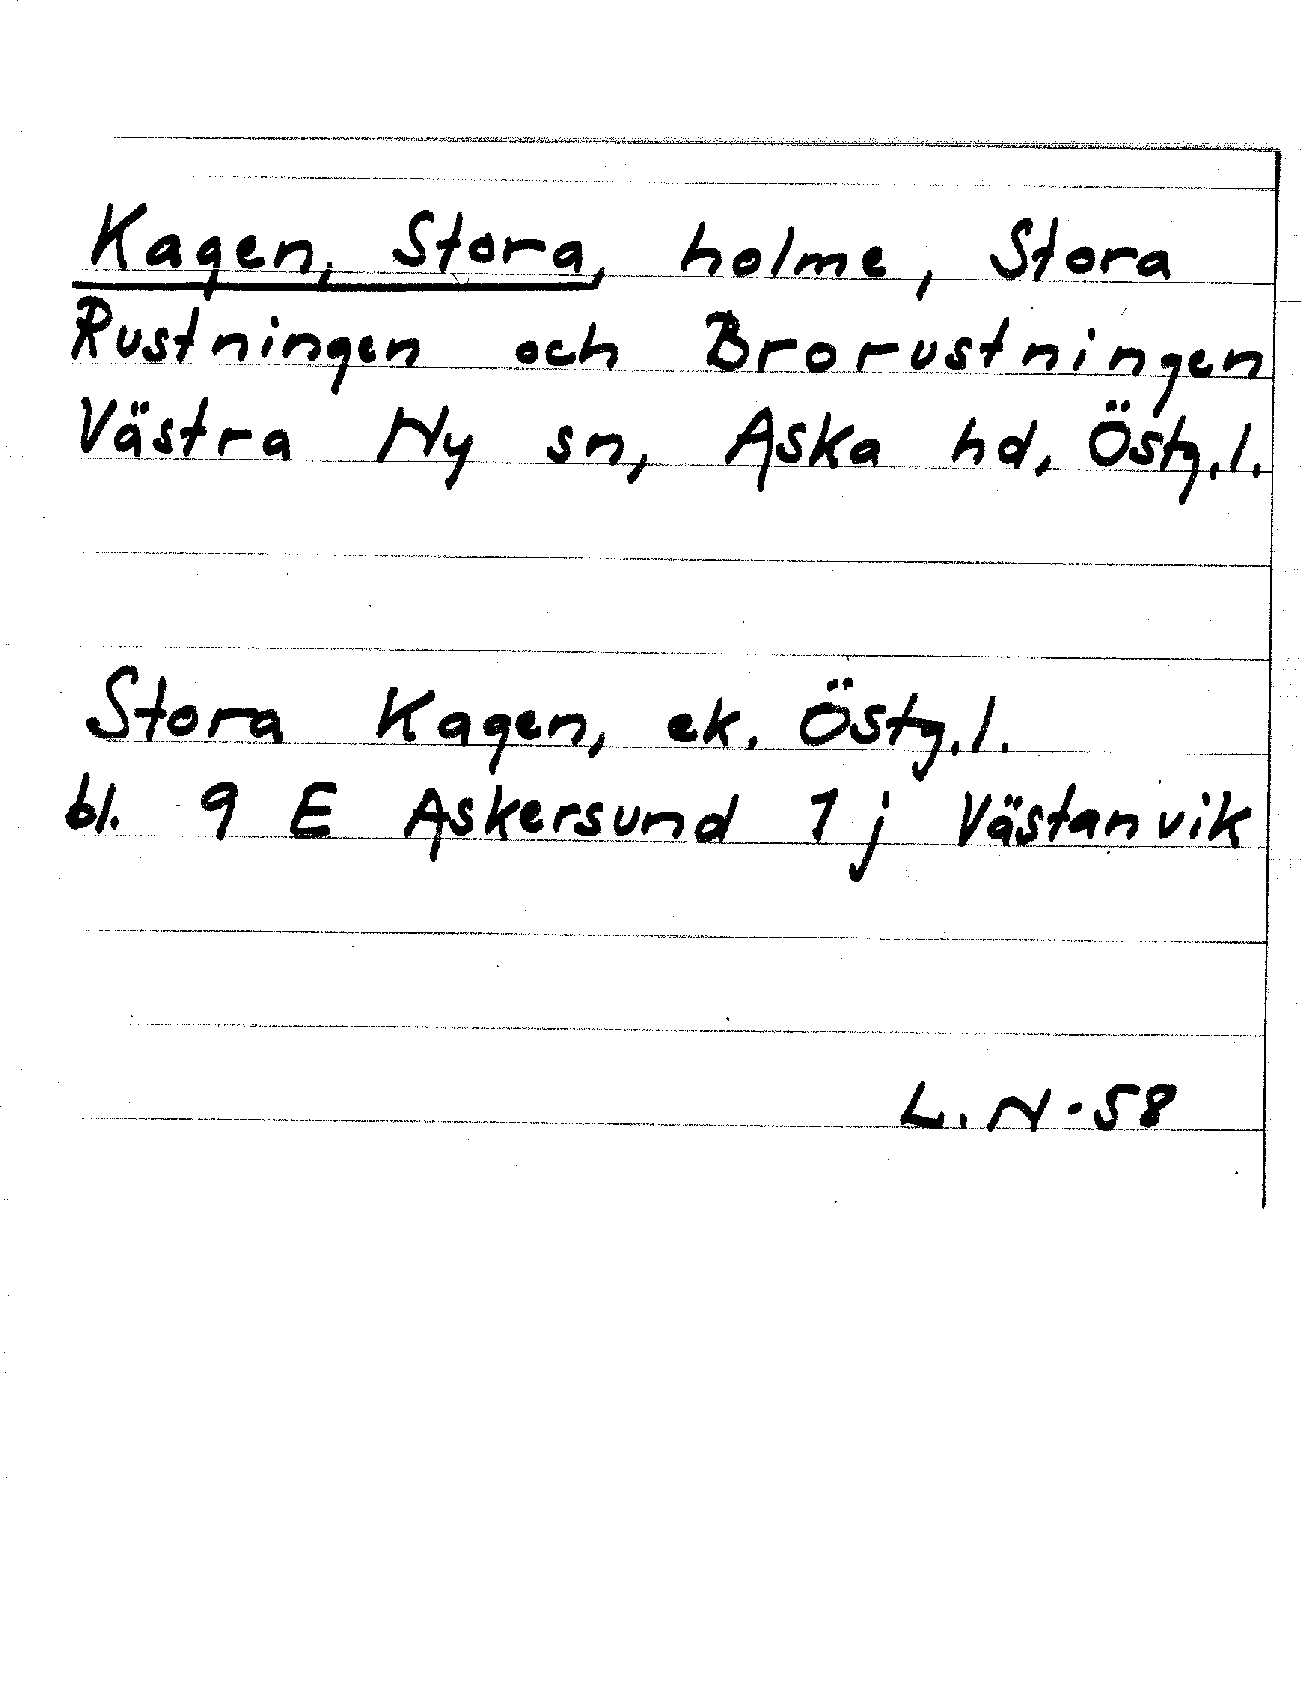 Kagen, Stora, holme, Stora
Rustningen och Brorustningen
Västra Ny sn, Aska hd, Östg.l.
Stora Kagen, ek. Östg.l.
bl. 9 E Askersund 1 j Västanvik
L. N. 58